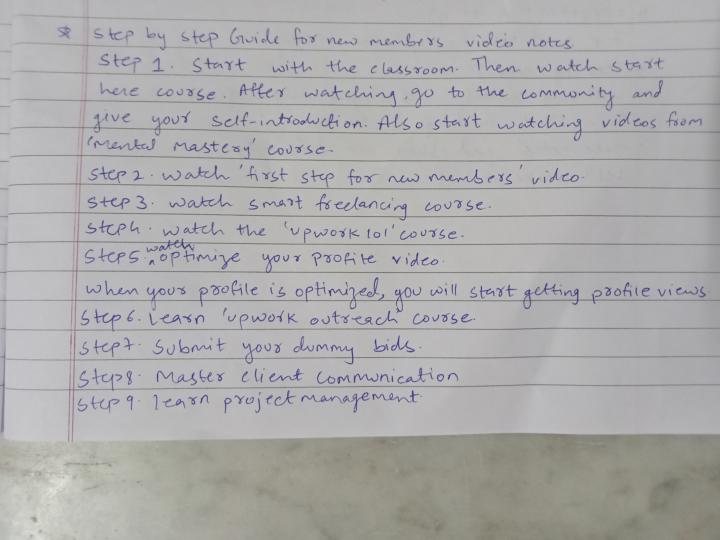 * Step by step Guide for new members video notes
Step 1. Start with the classroom. Then watch start
here course. After watching, go to the community and
give your self-introduction. Also start watching videos from
'mental mastery' course.
Step 2. watch 'first step for new members' video.
Step 3. watch smart freelancing course.
Step 4. watch the 'upwork 101' course.
Step 5. watch optimize your profile video.
when your profile is optimized, you will start getting profile views.
Step 6. Learn 'upwork outreach' course.
Step 7. Submit your dummy bids.
Step 8. Master client communication
Step 9. learn project management.